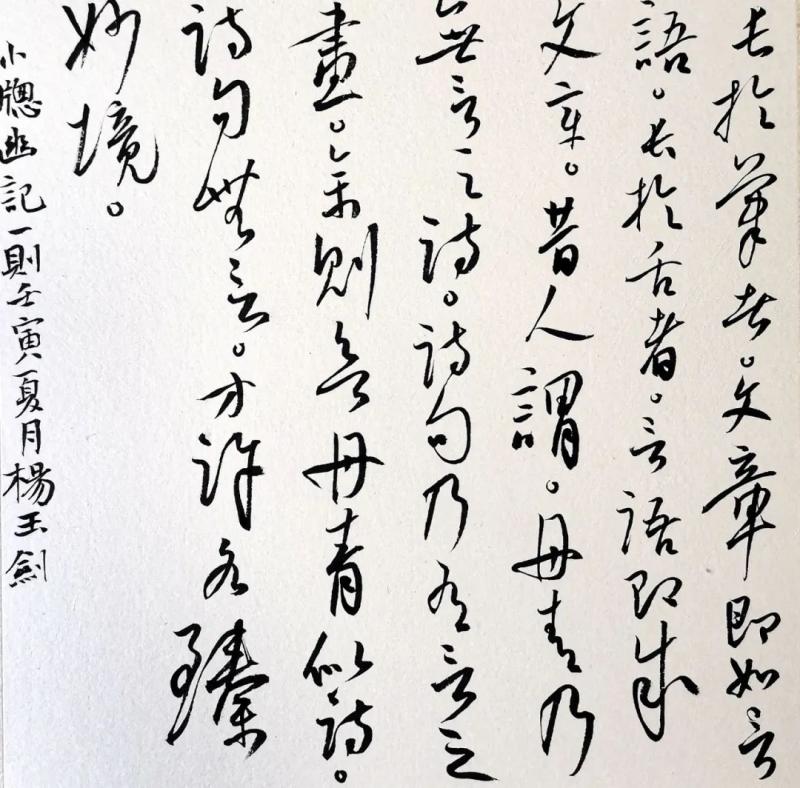 長於筆者。文章即如言
語。長於舌者。言語即成
文章。昔人謂。丹青乃
無言之詩。詩句乃有言之
畫。余則欲丹青似詩。
詩句無言。方許各臻
妙境。
小牕幽記一則壬寅夏月楊玉劍